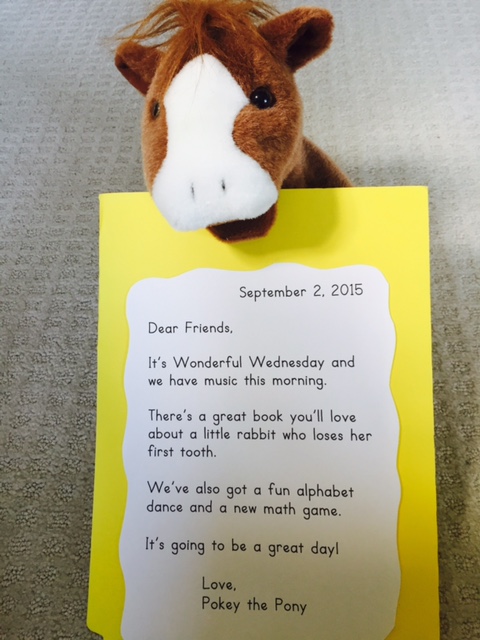 September 2, 2015
Dear Friends,
It's Wonderful Wednesday and
we have music this morning.
There's a great book you'll love
about a little rabbit who loses her
first tooth.
We've also got a fun alphabet
dance and a new math game.
It's going to be a great day!
Love,
Pokey the Pony